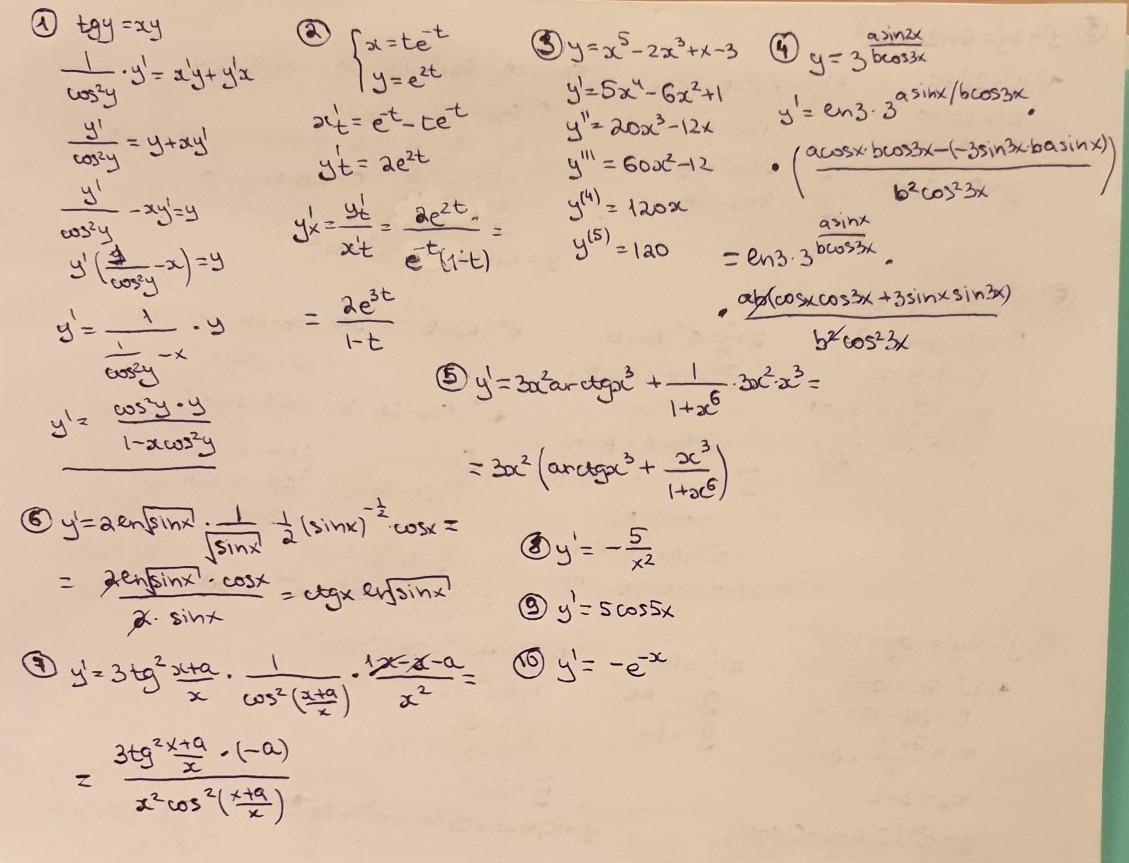 ① tgy = xy
1/cos²y · y' = x'y + y'x
y'/cos²y = y + xy'
y'/cos²y - xy' = y
y'(1/cos²y - x) = y
y' = 1/(1/cos²y - x) · y
y' = cos²y · y/(1 - xcos²y)
② { x = te^-t
y = e^2t
x't = e^-t - te^-t
y't = 2e^2t
y'x = y't/x't = 2e^2t/(e^-t(1-t)) =
= 2e^3t/(1-t)
③ y = x⁵ - 2x³ + x - 3
y' = 5x⁴ - 6x² + 1
y'' = 20x³ - 12x
y''' = 60x² - 12
y⁽⁴⁾ = 120x
y⁽⁵⁾ = 120
④ y = 3^(asin2x/bcos3x)
y' = ln3 · 3^(asinx/bcos3x) ·
· (acosx · bcos3x - (-3sin3x · basinx))/(b²cos²3x)
= ln3 · 3^(asinx/bcos3x) ·
· ab(cosxcos3x + 3sinxsin3x)/(b²cos²3x)
⑤ y' = 3x²arctgx³ + 1/(1+x⁶) · 3x² · x³ =
= 3x²(arctgx³ + x³/(1+x⁶))
⑥ y' = 2ln√sinx · 1/√sinx · 1/2 (sinx)^-1/2 · cosx =
= 2ln√sinx · cosx/(2 · sinx) = ctgx ln√sinx
⑦ y' = 3tg² x+a/x · 1/cos²(x+a/x) · (1x-x-a)/x² =
= 3tg² x+a/x · (-a)/(x²cos²(x+a/x))
⑧ y' = -5/x²
⑨ y' = 5cos5x
⑩ y' = -e^-x